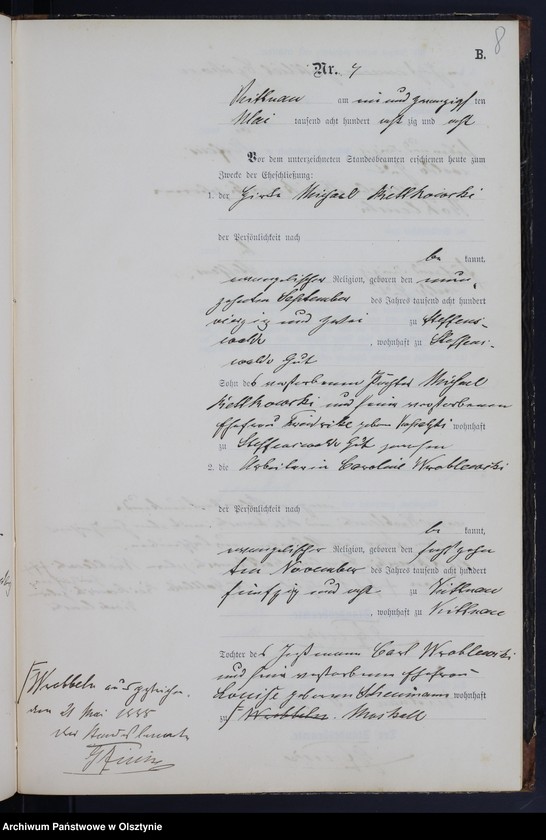 8
B.
Nr. 7
Kittnau am ein und zwanzigsten
Mai tausend acht hundert acht zig und acht
Vor dem unterzeichneten Standesbeamten erschienen heute zum
Zwecke der Eheschließung:
1. der Hirte Michael
der Persönlichkeit nach
be kannt,
evangelischer Religion, geboren den neun-
zehnten September des Jahres tausend acht hundert
vierzig und zwei zu Steffens-
walde, wohnhaft zu Steffens-
walde Gut
Sohn des verstorbenen Michael
und seiner verstorbenen
Ehefrau Friedrike geborne wohnhaft
zu Steffenswalde Gut
2. die Arbeiterin Caroline Wroblewski
der Persönlichkeit nach
be kannt,
evangelischer Religion, geboren den sechszehn
ten November des Jahres tausend acht hundert
fünfzig und acht zu Kittnau
, wohnhaft zu Kittnau
Tochter des Carl Wroblewski
und seiner verstorbenen Ehefrau
Louise geborne wohnhaft
zu
den 21 Mai 1888
Der Standesbeamte
Archiwum Państwowe w Olsztynie
Archiwum Państwowe w Olsztynie